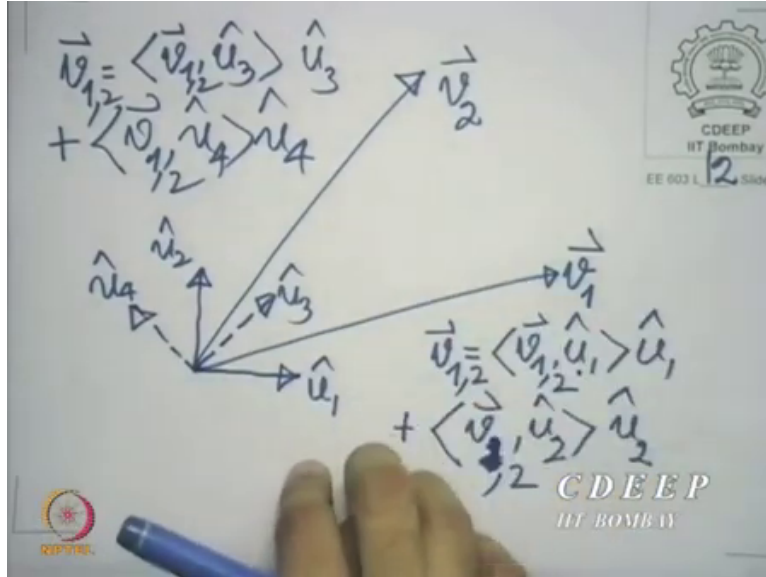 v⃗₁,₂ = ⟨v⃗₁,₂, û₃⟩ û₃
+ ⟨v⃗₁,₂, û₄⟩ û₄
v⃗₂
CDEEP
IIT Bombay
EE 603 L 12 Slide
û₂
û₄
û₃
v⃗₁
û₁
v⃗₁,₂ = ⟨v⃗₁,₂, û₁⟩ û₁
+ ⟨v⃗₁,₂, û₂⟩ û₂
CDEEP
IIT BOMBAY
NPTEL